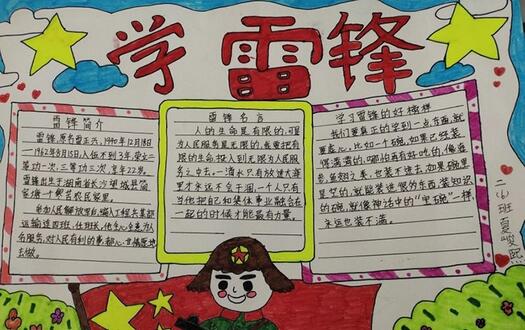 学雷锋
雷锋简介
雷锋,原名雷正兴,1940年12月18日
-1962年8月15日入伍不到3年,荣立二
等功一次,三等功二次,享年22岁。
雷锋出生于湖南省长沙望城县简
家塘一个贫苦农民家里。
参加人民解放军后,编入工程兵某部
运输连四班,任班长,他全心全意为人
民服务,对人民有利的事,都心甘情愿地
去做。
雷锋名言
人的生命是有限的,可是
为人民服务是无限的,我要把有
限的生命投入到无限为人民服
务之中去。一滴水只有放进大海
里才永远不会干涸,一个人只有
当他把自己和集体事业融合在
一起的时候才能最有力量。
学习雷锋的好榜样
我们要真正的学到一点东西,就
要虚心,比如一个碗,如果已经装
得满满的,哪怕再有好吃的,像海
参,鱼翅之类,也装不进去,如果碗里
是空的,就能装进很多东西,装知识
的碗,就像神话中的“宝碗”一样,
永远也装不满。